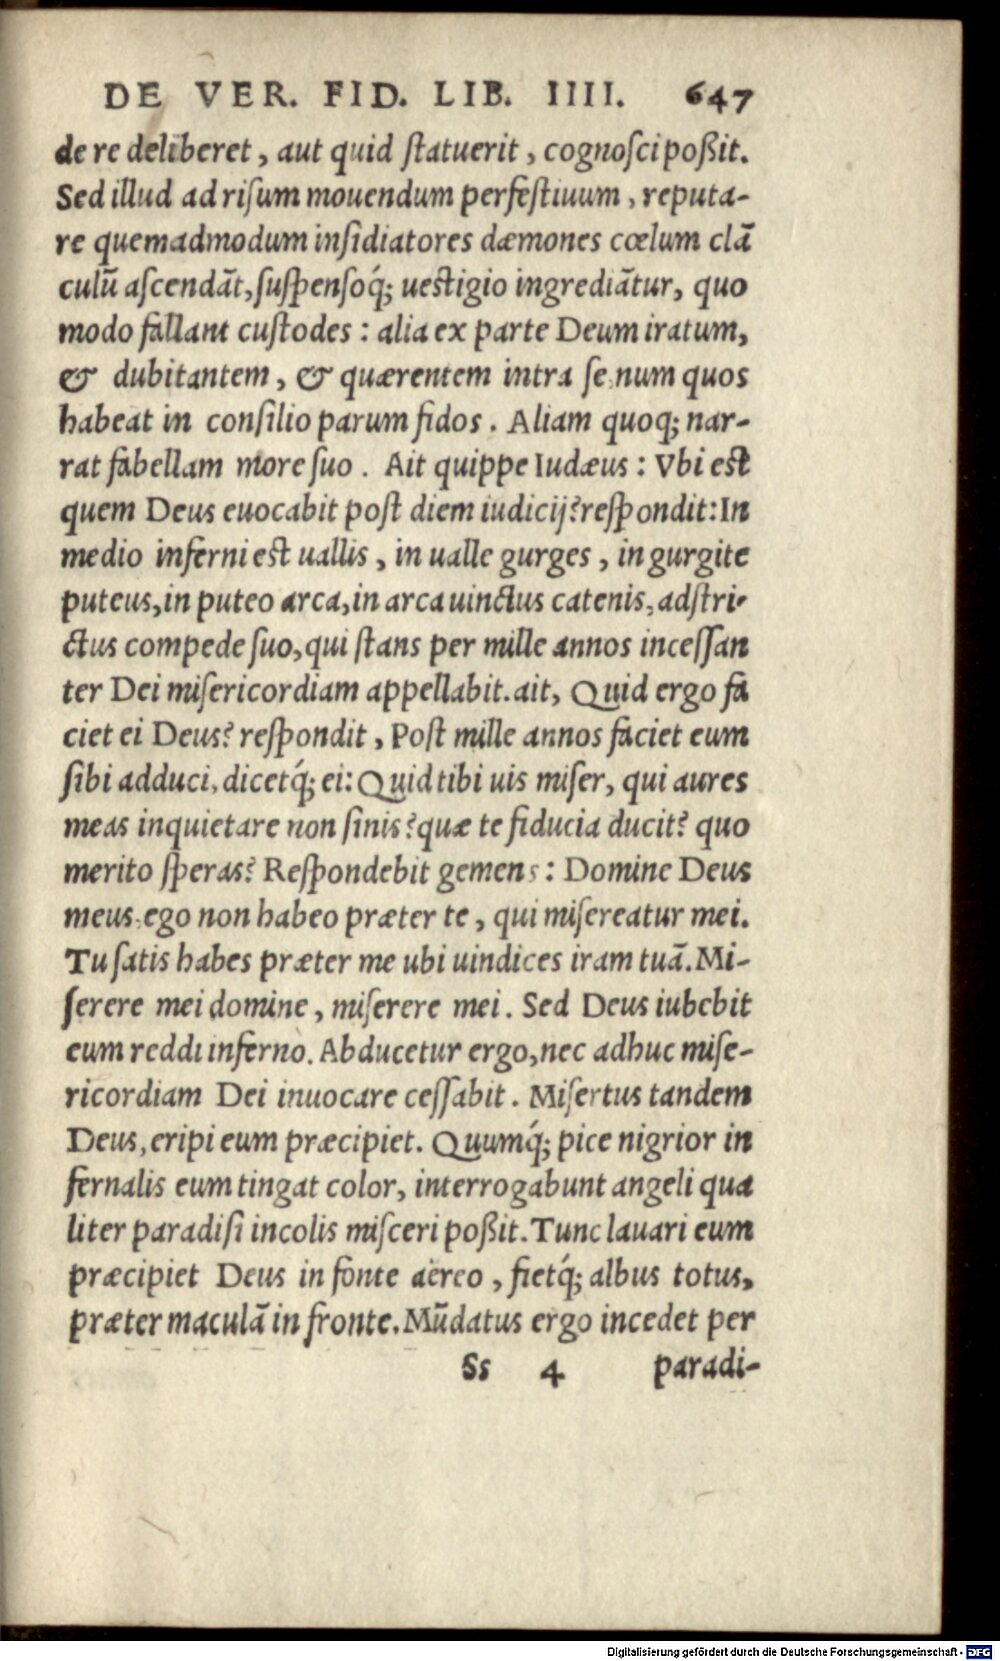 DE VER. FID. LIB. IIII. 647
de re deliberet, aut quid ſtatuerit, cognoſci poßit.
Sed illud ad riſum mouendum perfeſtiuum, reputa-
re quemadmodum inſidiatores dæmones cœlum clã
culũ aſcendãt, ſuſpenſoq́; ueſtigio ingrediãtur, quo
modo fallant cuſtodes: alia ex parte Deum iratum,
& dubitantem, & quærentem intra ſe num quos
habeat in conſilio parum fidos. Aliam quoq; nar-
rat fabellam more ſuo. Ait quippe Iudæus: Vbi eſt
quem Deus euocabit poſt diem iudicij? reſpondit: In
medio inferni eſt uallis, in ualle gurges, in gurgite
puteus, in puteo arca, in arca uinctus catenis, adſtri-
ctus compede ſuo, qui ſtans per mille annos inceſſan
ter Dei miſericordiam appellabit. ait, Quid ergo fa
ciet ei Deus? reſpondit, Poſt mille annos faciet eum
ſibi adduci, dicetq́; ei: Quid tibi uis miſer, qui aures
meas inquietare non ſinis? quæ te fiducia ducit? quo
merito ſperas? Reſpondebit gemens: Domine Deus
meus ego non habeo præter te, qui miſereatur mei.
Tu ſatis habes præter me ubi uindices iram tuã. Mi-
ſerere mei domine, miſerere mei. Sed Deus iubebit
eum reddi inferno. Abducetur ergo, nec adhuc miſe-
ricordiam Dei inuocare ceſſabit. Miſertus tandem
Deus, eripi eum præcipiet. Quumq́; pice nigrior in
fernalis eum tingat color, interrogabunt angeli qua
liter paradiſi incolis miſceri poßit. Tunc lauari eum
præcipiet Deus in fonte aëreo, fietq́; albus totus,
præter maculã in fronte. Mũdatus ergo incedet per
Ss 4 paradi-
Digitalisierung gefördert durch die Deutsche Forschungsgemeinschaft - DFG